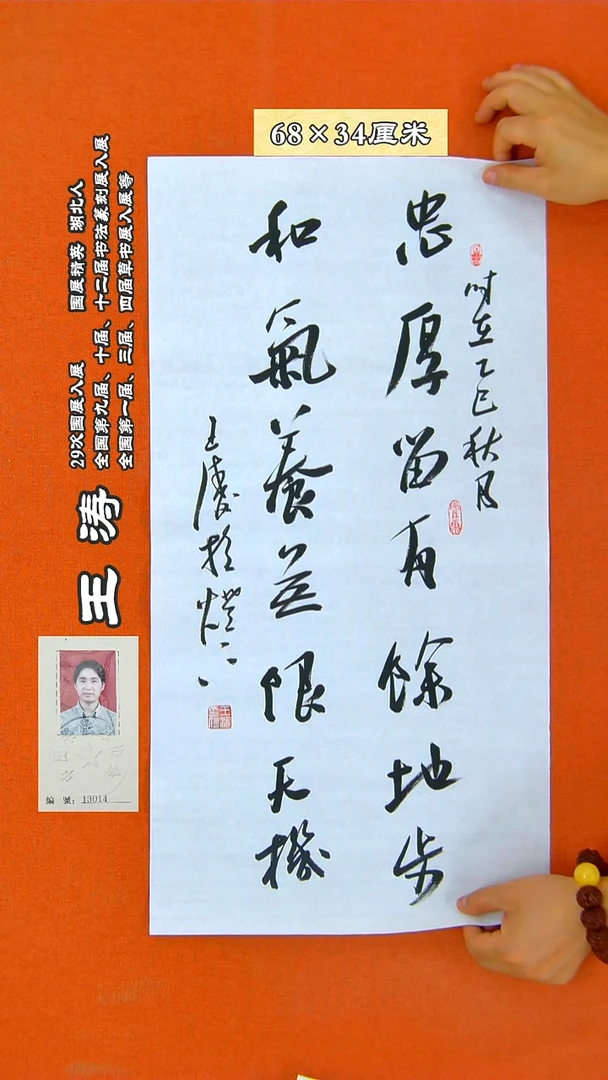 68×34厘米
时在乙巳秋月
忠厚留有餘地步
和氣養无限天機
王涛
29次国展入展　国展精英　湖北人
全国第九届、十届、十二届书法篆刻展入展
全国第一届、三届、四届草书展入展等
王涛
编号：13014